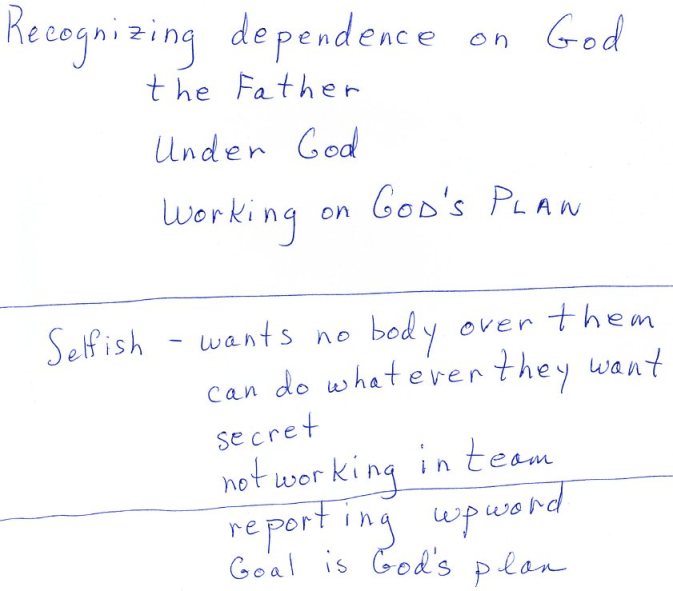 Recognizing dependence on God
the Father
Under God
Working on GOD'S PLAN
Selfish - wants no body over them
can do whatever they want
secret
not working in team
reporting upward
Goal is God's plan